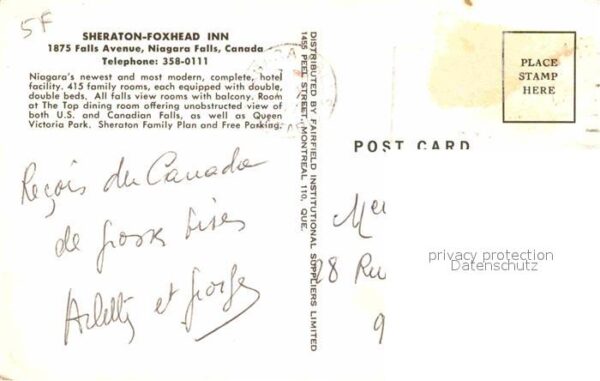 5F
SHERATON-FOXHEAD INN
1875 Falls Avenue, Niagara Falls, Canada
Telephone: 358-0111
Niagara's newest and most modern, complete, hotel
facility. 415 family rooms, each equipped with double,
double beds. All falls view rooms with balcony. Room
at The Top dining room offering unobstructed view of
both U.S. and Canadian Falls, as well as Queen
Victoria Park. Sheraton Family Plan and Free Parking.
Reçois du Canada
de grosses bises
Arlette et Georges
DISTRIBUTED BY FAIRFIELD INSTITUTIONAL SUPPLIERS LIMITED
1455 PEEL STREET, MONTREAL 110, QUE.
PLACE
STAMP
HERE
POST CARD
28 Ru
9
privacy protection
Datenschutz